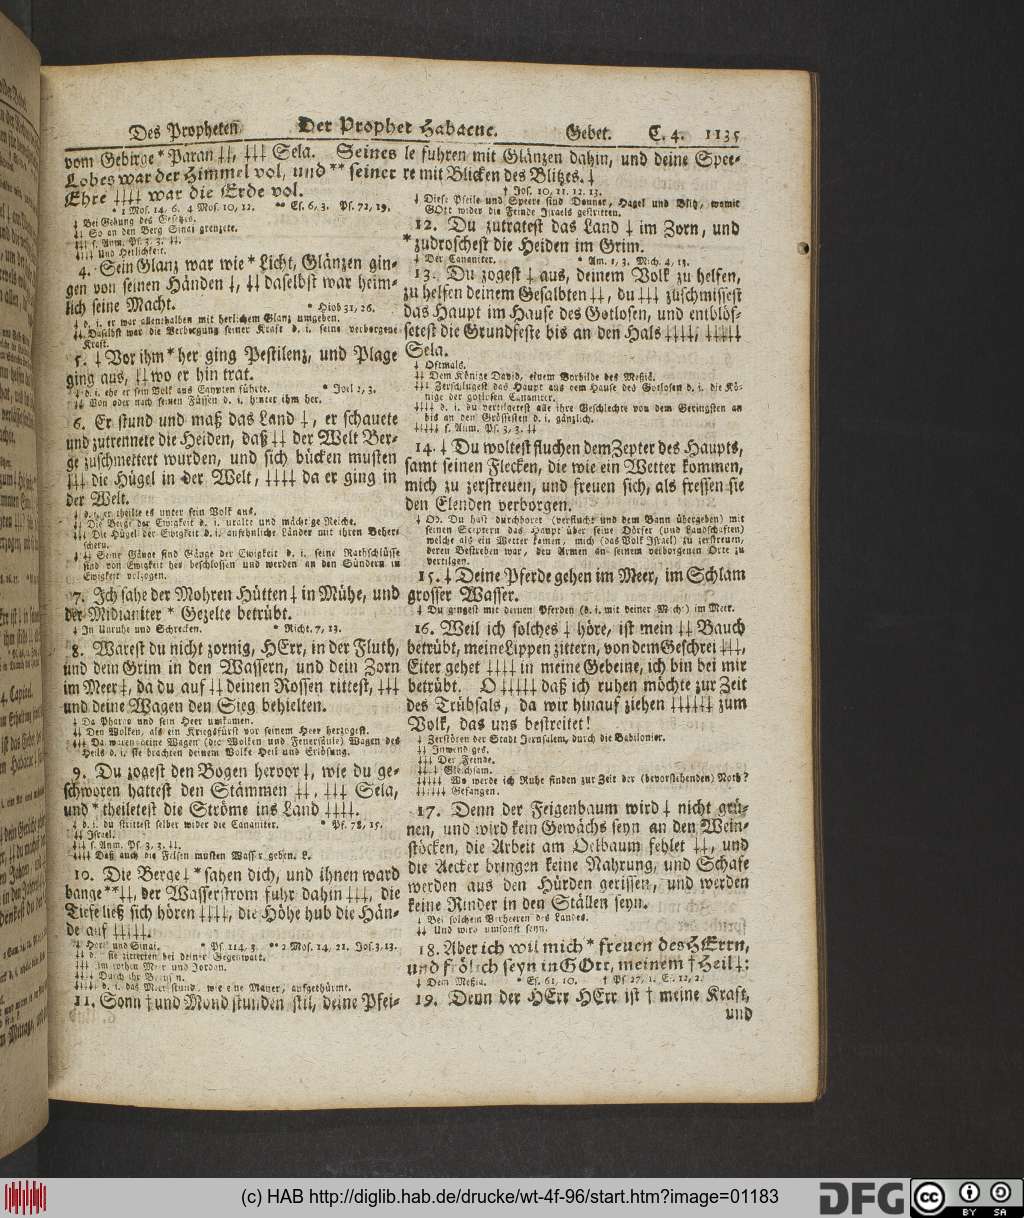 Des Propheten Der Prophet Habacuc. Gebet. C. 4. 1135
vom Gebirge * Paran ‡‡, ‡‡‡ Sela. Seines
Lobes war der Himmel vol, und ** seiner
Ehre ‡‡‡‡ war die Erde vol.
* 1 Mos. 14, 6. 4 Mos. 10, 12. ** Es. 6, 3. Ps. 72, 19.
‡ Bei Gebung des Gesetzes.
‡‡ So an den Berg Sinai grenzete.
‡‡‡ s. Anm. Ps. 3, 3. ‡‡.
‡‡‡‡ Und Herlichkeit.
4. Sein Glanz war wie * Licht, Glänzen gin-
gen von seinen Händen ‡, ‡‡ daselbst war heim-
lich seine Macht. * Hiob 31, 26.
‡ d. i. er war allenthalben mit herlichem Glanz umgeben.
‡‡ Daselbst war die Verborgung seiner Kraft d. i. seine verborgene
Kraft.
5. ‡ Vor ihm * her ging Pestilenz, und Plage
ging aus, ‡‡ wo er hin trat.
‡ d. i. ehe er sein Volk aus Egypten führte. * Joel 2, 3.
‡‡ Von oder nach seinen Füssen d. i. hinter ihm her.
6. Er stund und maß das Land ‡, er schauete
und zutrennete die Heiden, daß ‡‡ der Welt Ber-
ge zuschmettert wurden, und sich bücken musten
‡‡‡ die Hügel in der Welt, ‡‡‡‡ da er ging in
der Welt.
‡ d. i. er theilte es unter sein Volk aus.
‡‡ Die Berge der Ewigkeit d. i. uralte und mächtige Reiche.
‡‡‡ Die Hügel der Ewigkeit d. i. ansehnliche Länder mit ihren Beher-
schern.
‡‡‡‡ Seine Gänge sind Gänge der Ewigkeit d. i. seine Rathschlüsse
sind von Ewigkeit her beschlossen und werden an den Sündern in
Ewigkeit volzogen.
7. Ich sahe der Mohren Hütten ‡ in Mühe, und
der Midianiter * Gezelte betrübt.
‡ In Unruhe und Schrecken. * Richt. 7, 13.
8. Warest du nicht zornig, HErr, in der Fluth,
und dein Grim in den Wassern, und dein Zorn
im Meer ‡, da du auf ‡‡ deinen Rossen rittest, ‡‡‡
und deine Wagen den Sieg behielten.
‡ Da Pharao und sein Heer umkamen.
‡‡ Den Wolken, als ein Kriegsfürst vor seinem Heer herzogest.
‡‡‡ Da waren deine Wagen (die Wolken und Feuersäule) Wagen des
Heils d. i. sie brachten deinem Volke Heil und Erlösung.
9. Du zogest den Bogen hervor ‡, wie du ge-
schworen hattest den Stämmen ‡‡, ‡‡‡ Sela,
und * theiletest die Ströme ins Land ‡‡‡‡.
‡ d. i. du strittest selber wider die Cananiter. * Ps. 78, 15.
‡‡ Israel.
‡‡‡ s. Anm. Ps. 3, 3. ‡‡.
‡‡‡‡ Daß auch die Felsen musten Wasser geben. L.
10. Die Berge ‡ * sahen dich, und ihnen ward
bange ** ‡‡, der Wasserstrom fuhr dahin ‡‡‡, die
Tiefe ließ sich hören ‡‡‡‡, die Höhe hub die Hän-
de auf ‡‡‡‡‡.
‡ Horeb und Sinai. * Ps. 114, 3. ** 2 Mos. 14, 21. Jos. 3, 13.
‡‡ d. i. sie zitterten bei deiner Gegenwart.
‡‡‡ Im rothen Meer und Jordan.
‡‡‡‡ Durch ihr Brausen.
‡‡‡‡‡ d. i. das Meer stund, wie eine Mauer, aufgethürmt.
11. Sonn † und Mond stunden stil, deine Pfei-
le fuhren mit Glänzen dahin, und deine Spee-
re mit Blicken des Blitzes. ‡
† Jos. 10, 11. 12. 13.
‡ Diese Pfeile und Speere sind Donner, Hagel und Blitz, womit
GOtt wider die Feinde Israels gestritten.
12. Du zutratest das Land ‡ im Zorn, und
* zudroschest die Heiden im Grim.
‡ Der Cananiter. * Am. 1, 3. Mich. 4, 13.
13. Du zogest ‡ aus, deinem Volk zu helfen,
zu helfen deinem Gesalbten ‡‡, du ‡‡‡ zuschmissest
das Haupt im Hause des Gotlosen, und entblös-
setest die Grundfeste bis an den Hals ‡‡‡‡, ‡‡‡‡‡
Sela.
‡ Oftmals.
‡‡ Dem Könige David, einem Vorbilde des Meßiä.
‡‡‡ Zerschlugest das Haupt aus dem Hause des Gotlosen d. i. die Kö-
nige der gotlosen Cananiter.
‡‡‡‡ d. i. du vertilgetest alle ihre Geschlechte von dem Geringsten an
bis an den Grössesten d. i. gänzlich.
‡‡‡‡‡ s. Anm. Ps. 3, 3. ‡‡
14. ‡ Du woltest fluchen dem Zepter des Haupts,
samt seinen Flecken, die wie ein Wetter kommen,
mich zu zerstreuen, und freuen sich, als fressen sie
den Elenden verborgen.
‡ Od. Du hast durchboret (verflucht und dem Bann übergeben) mit
seinen Sceptern das Haupt über seine Dörfer (und Landschaften)
welche als ein Wetter kamen, mich (das Volk Israel) zu zerstreuen,
deren Bestreben war, den Armen an seinem verborgenen Orte zu
vertilgen.
15. ‡ Deine Pferde gehen im Meer, im Schlam
grosser Wasser.
‡ Du gingest mit deinen Pferden (d. i. mit deiner Macht) im Meer.
16. Weil ich solches ‡ höre, ist mein ‡‡ Bauch
betrübt, meine Lippen zittern, von dem Geschrei ‡‡‡,
Eiter gehet ‡‡‡‡ in meine Gebeine, ich bin bei mir
betrübt. O ‡‡‡‡‡ daß ich ruhen möchte zur Zeit
des Trübsals, da wir hinauf ziehen ‡‡‡‡‡‡ zum
Volk, das uns bestreitet!
‡ Zerstören der Stadt Jerusalem, durch die Babilonier.
‡‡ Inwendiges.
‡‡‡ Der Feinde.
‡‡‡‡ Gleichsam.
‡‡‡‡‡ Wo werde ich Ruhe finden zur Zeit der (bevorstehenden) Noth?
‡‡‡‡‡‡ Gefangen.
17. Denn der Feigenbaum wird ‡ nicht grü-
nen, und wird kein Gewächs seyn an den Wein-
stöcken, die Arbeit am Oelbaum fehlet ‡‡, und
die Aecker bringen keine Nahrung, und Schafe
werden aus den Hürden gerissen, und werden
keine Rinder in den Ställen seyn.
‡ Bei solchem Verheeren des Landes.
‡‡ Und wird umsonst seyn.
18. Aber ich wil mich * freuen des HErrn,
und frölich seyn in GOtt, meinem † Heil ‡:
‡ Dem Meßia. * Es. 61, 10. † Ps. 27, 1. Es. 12, 2.
19. Denn der HErr HErr ist † meine Kraft,
und
(c) HAB http://diglib.hab.de/drucke/wt-4f-96/start.htm?image=01183
DFG
cc BY SA